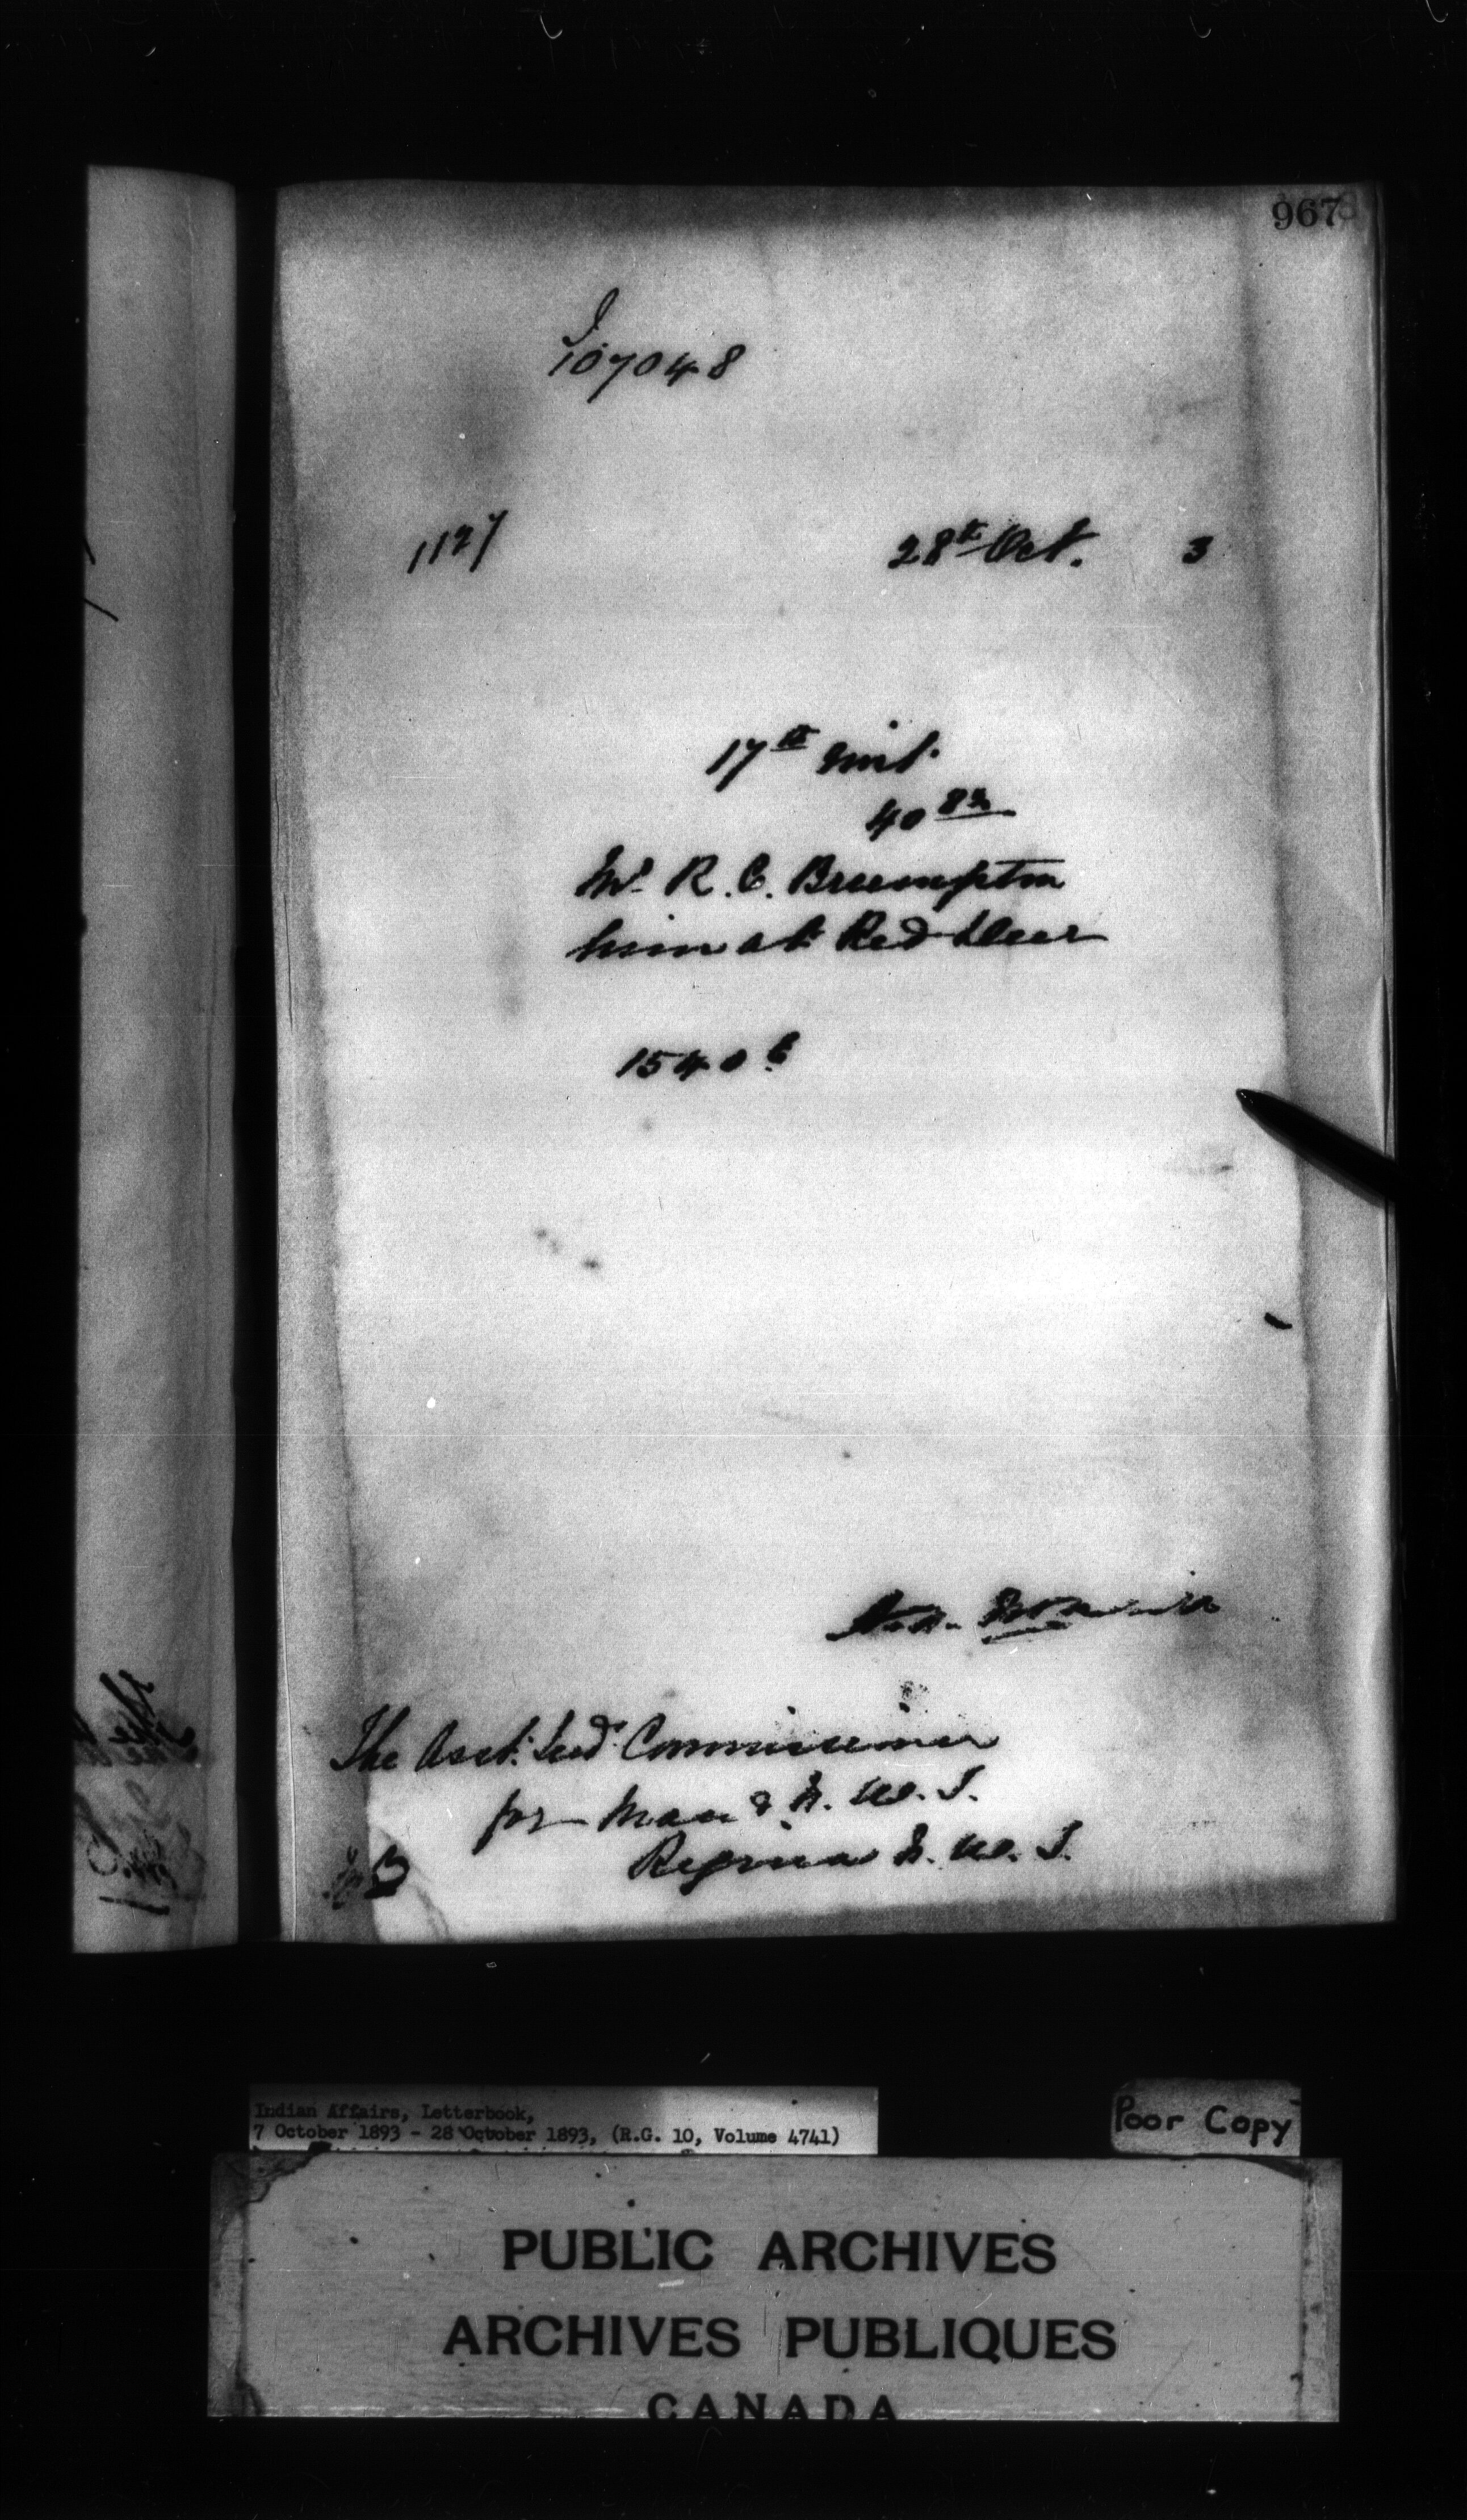 967
107048
1127 28th Oct. 3
17th inst.
40 82
Mr R. C. Brumpton
him at Red Deer
1540 6
The Asst. Ind. Commissioner
for Man & N. W. T.
Regina N. W. T.
Indian Affairs, Letterbook,
7 October 1893 - 28 October 1893, (R.G. 10, Volume 4741)
Poor Copy
PUBLIC ARCHIVES
ARCHIVES PUBLIQUES
CANADA